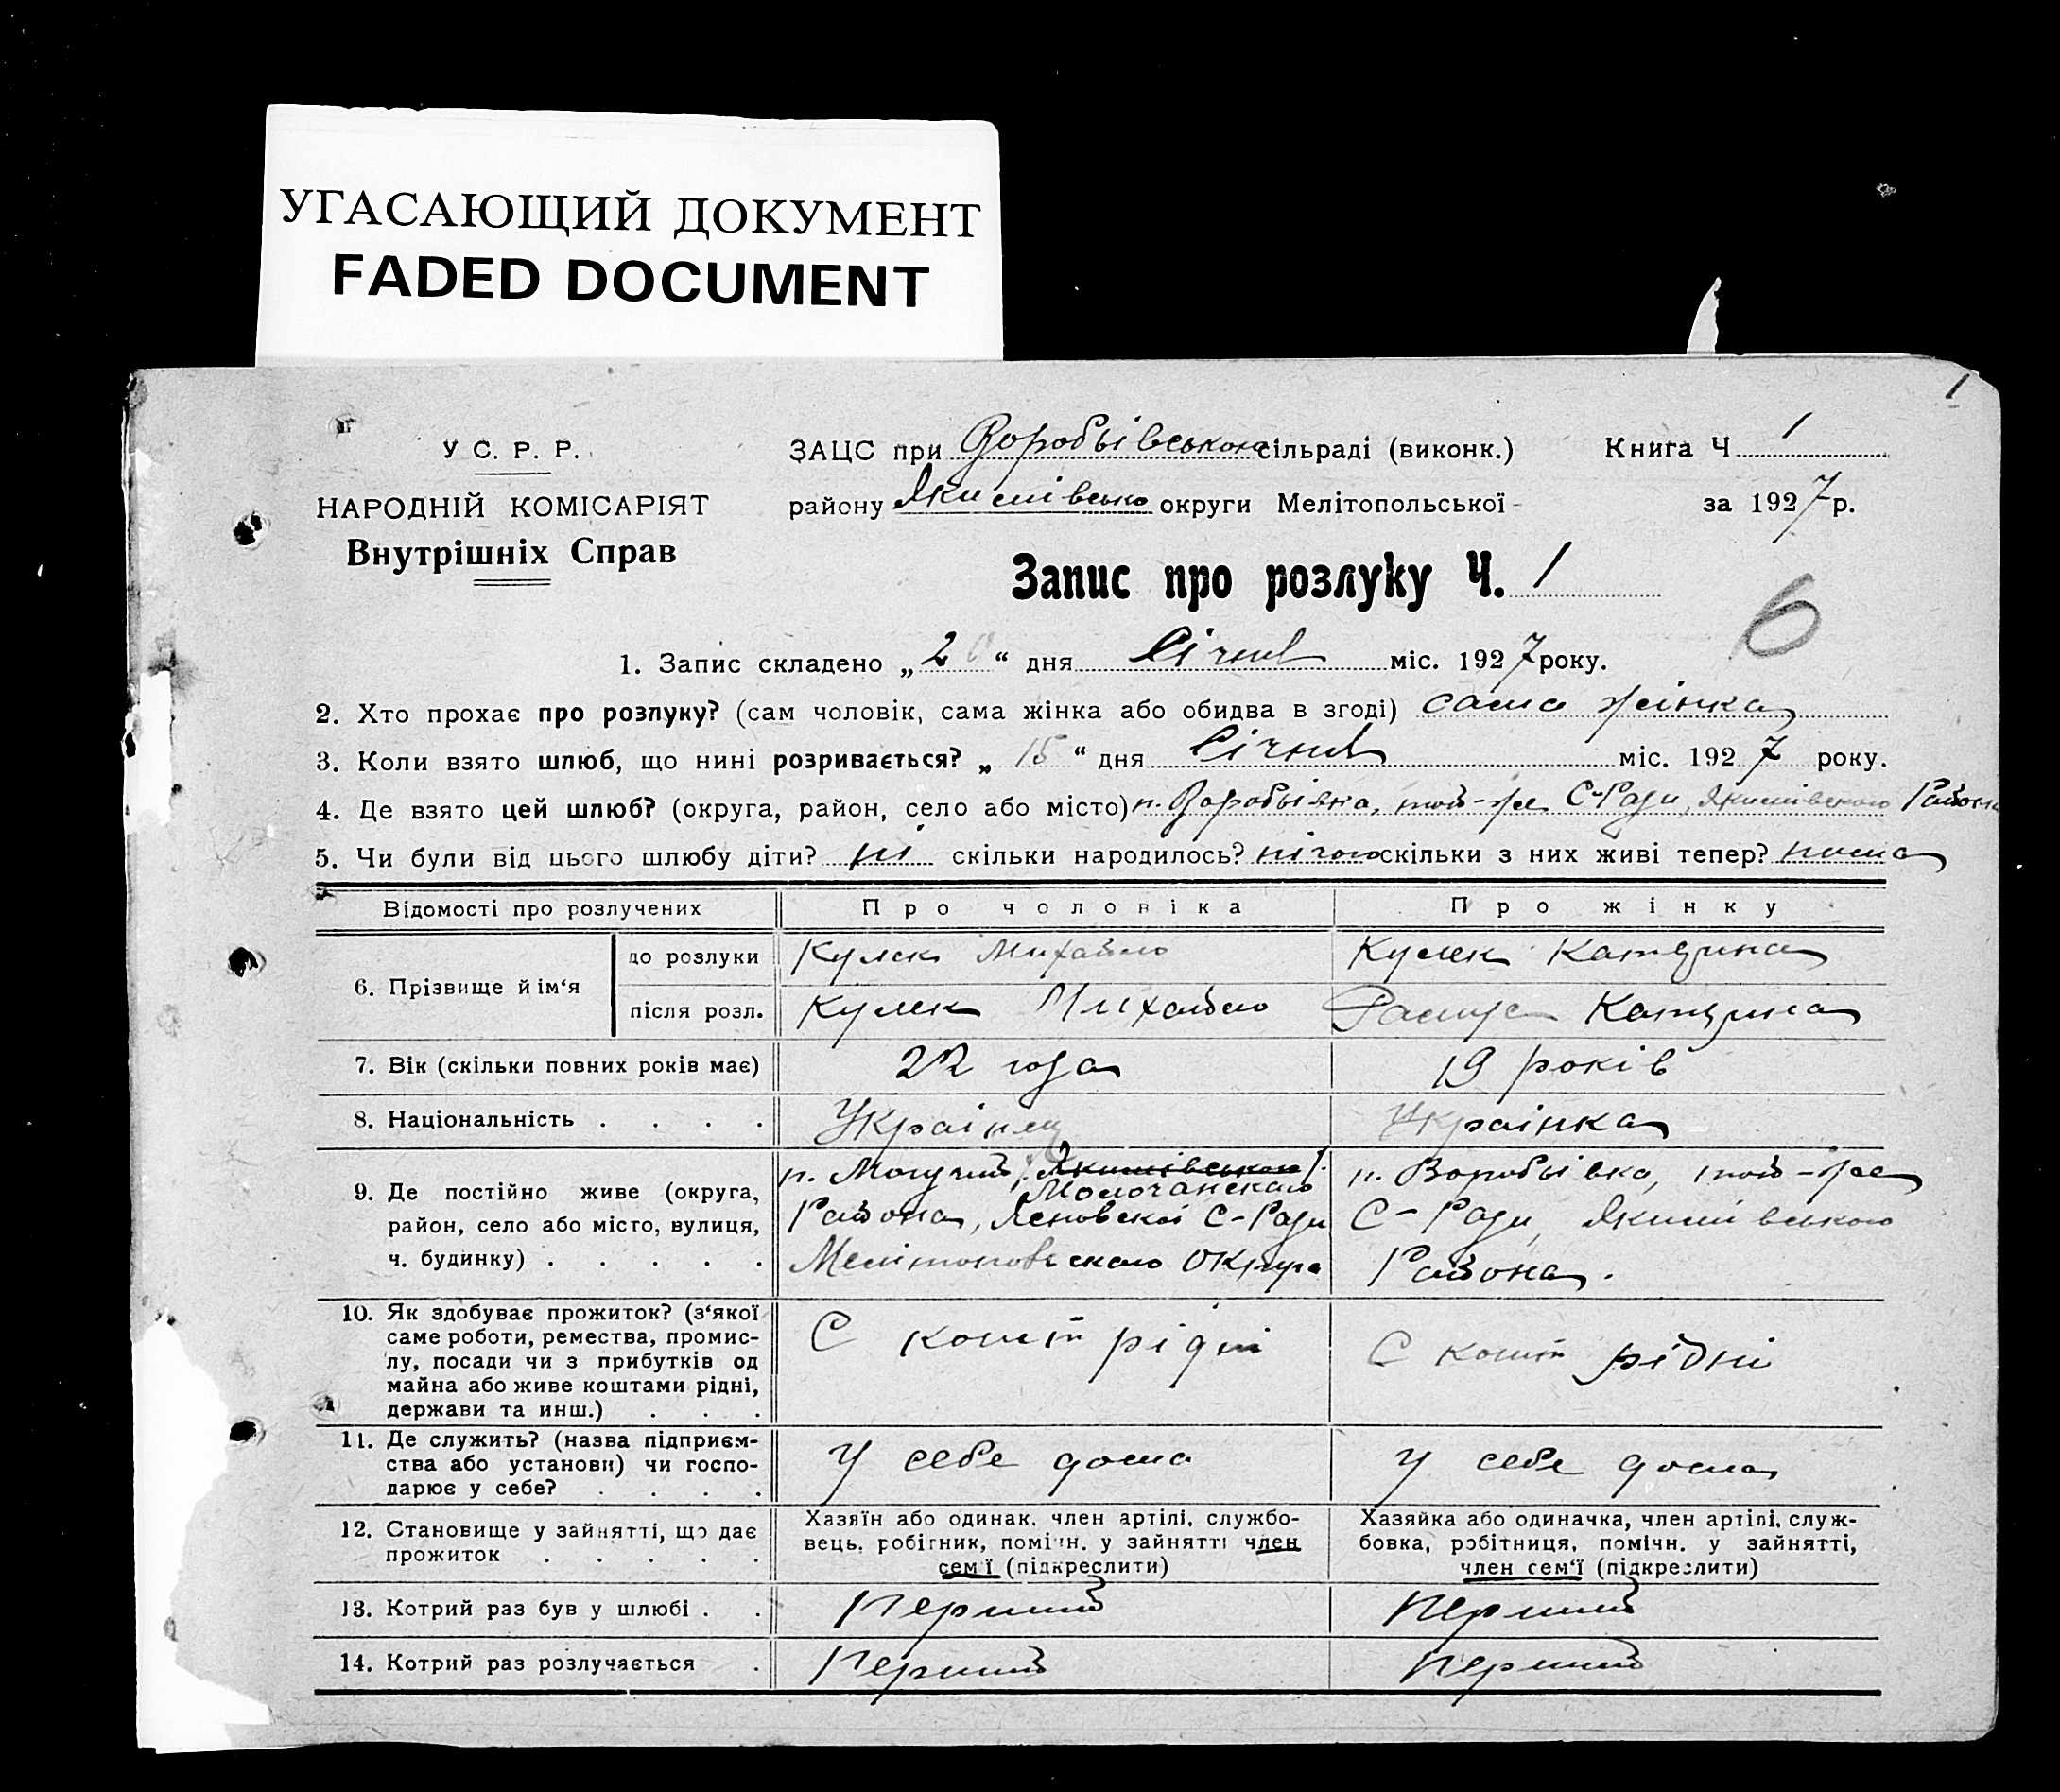 УГАСАЮЩИЙ ДОКУМЕНТ
FADED DOCUMENT
1
У С. Р. Р.
НАРОДНІЙ КОМІСАРІЯТ
Внутрішніх Справ
ЗАЦС при Воробьівською сільраді (виконк.)
району Якимівсько округи Мелітопольської
Книга Ч 1
за 1927 р.
Запис про розлуку Ч. 1
6
1. Запис складено „20“ дня Січня міс. 1927 року.
2. Хто прохає про розлуку? (сам чоловік, сама жінка або обидва в згоді) сама жінка
3. Коли взято шлюб, що нині розривається? „15“ дня Січня міс. 1927 року.
4. Де взято цей шлюб? (округа, район, село або місто) п. Воробьівка, той-же С-Ради, Якимівського Района
5. Чи були від цього шлюбу діти? ні скільки народилось? нічого скільки з них живі тепер? нема
Відомості про розлучених
Про чоловіка
Про жінку
6. Прізвище й ім‘я
до розлуки
Кулек Михайло
Кулек Катерина
після розл.
Кулек Михайло
Катерина
7. Вік (скільки повних років має)
22 года
19 років
8. Національність . . . .
Украінец
Украінка
9. Де постійно живе (округа,
район, село або місто, вулиця,
ч. будинку) . . . . .
п. Могучий, Якимівського
Молочанскаго
Района, С-Ради
Мелітопольскаго Округа
п. Воробьівка, той-же
С-Ради, Якимівського
Района.
10. Як здобуває прожиток? (з‘якої
саме роботи, ремества, промис-
лу, посади чи з прибутків од
майна або живе коштами рідні,
держави та инш.) . . .
С кошт рідні
С кошт рідні
11. Де служить? (назва підприєм-
ства або установи) чи госпо-
дарює у себе? . . . .
У себе дома
У себе дома
12. Становище у зайнятті, що дає
прожиток . . . . .
Хазяїн або одинак, член артілі, службо-
вець, робітник, помічн. у зайнятті член
сем‘ї (підкреслити)
Хазяйка або одиначка, член артілі, служ-
бовка, робітниця, помічн. у зайнятті,
член сем‘ї (підкреслити)
13. Котрий раз був у шлюбі . .
Перший
Перший
14. Котрий раз розлучається .
Перший
Перший